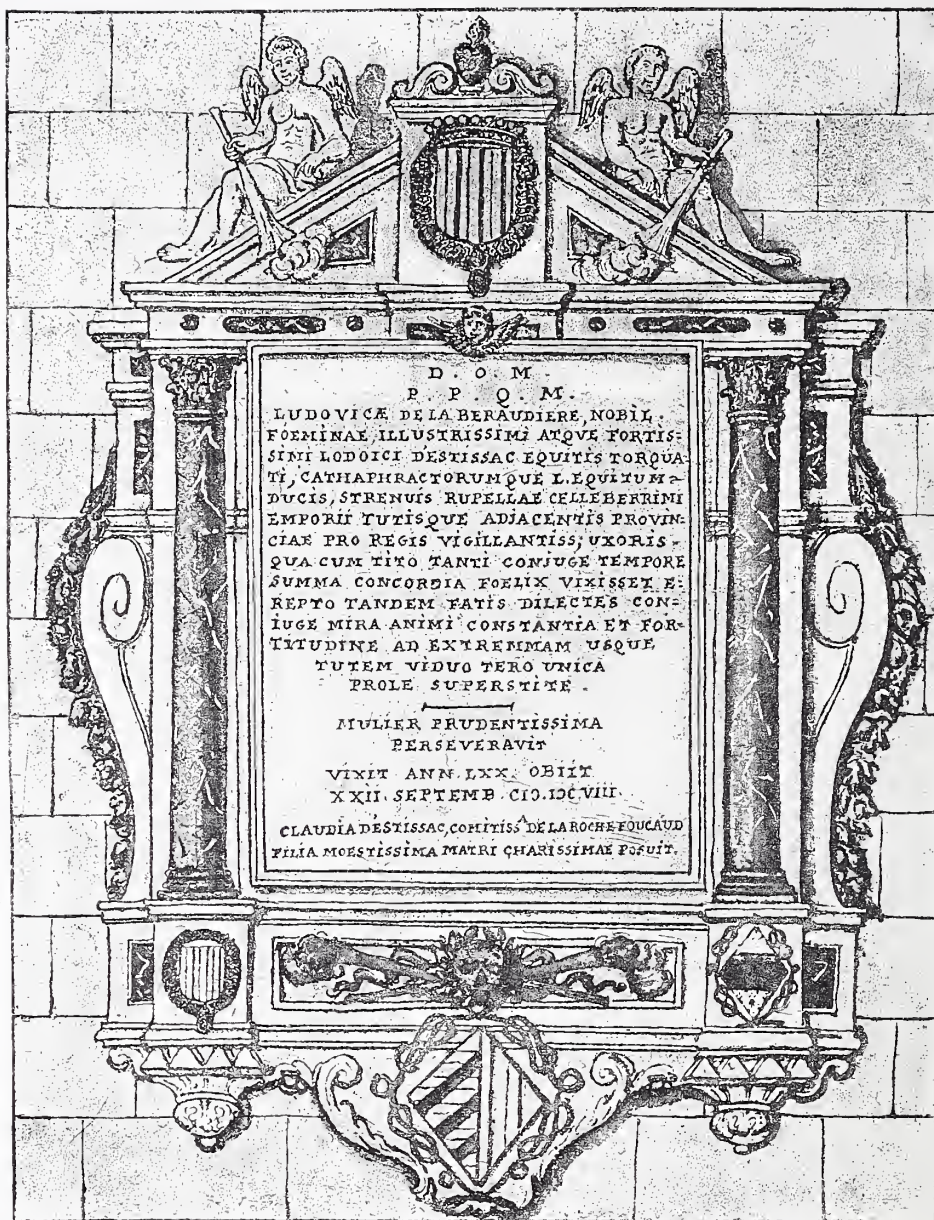 D. O. M.
P. P. Q. M.
LUDOVICÆ DE LA BERAUDIERE, NOBIL.
FOEMINAE, ILLUSTRISSIMI ATQVE FORTIS-
SIMI LODOICI DESTISSAC EQUITIS TORQUA-
TI, CATHAPHRACTORUMQUE L. EQUITUM
DUCIS, STRENUIS RUPELLAE CELLEBERRIMI
EMPORII TUTISQUE ADJACENTIS PROVIN-
CIAE PRO REGIS VIGILLANTISS; UXORIS
QUA CUM TITO TANTI CONJUGE TEMPORE
SUMMA CONCORDIA FOELIX VIXISSET E-
REPTO TANDEM FATIS DILECTES CON-
IUGE MIRA ANIMI CONSTANTIA ET FOR-
TITUDINE AD EXTREMMAM USQUE
TUTEM VIDUO TERO UNICA
PROLE SUPERSTITE.
MULIER PRUDENTISSIMA
PERSEVERAVIT
VIXIT ANN. LXX. OBIIT
XXII. SEPTEMB. CIƆ.IƆCVIII.
CLAUDIA DESTISSAC, COMITISSA DE LA ROCHE FOUCAUD
FILIA MOESTISSIMA MATRI CHARISSIMAE POSUIT.